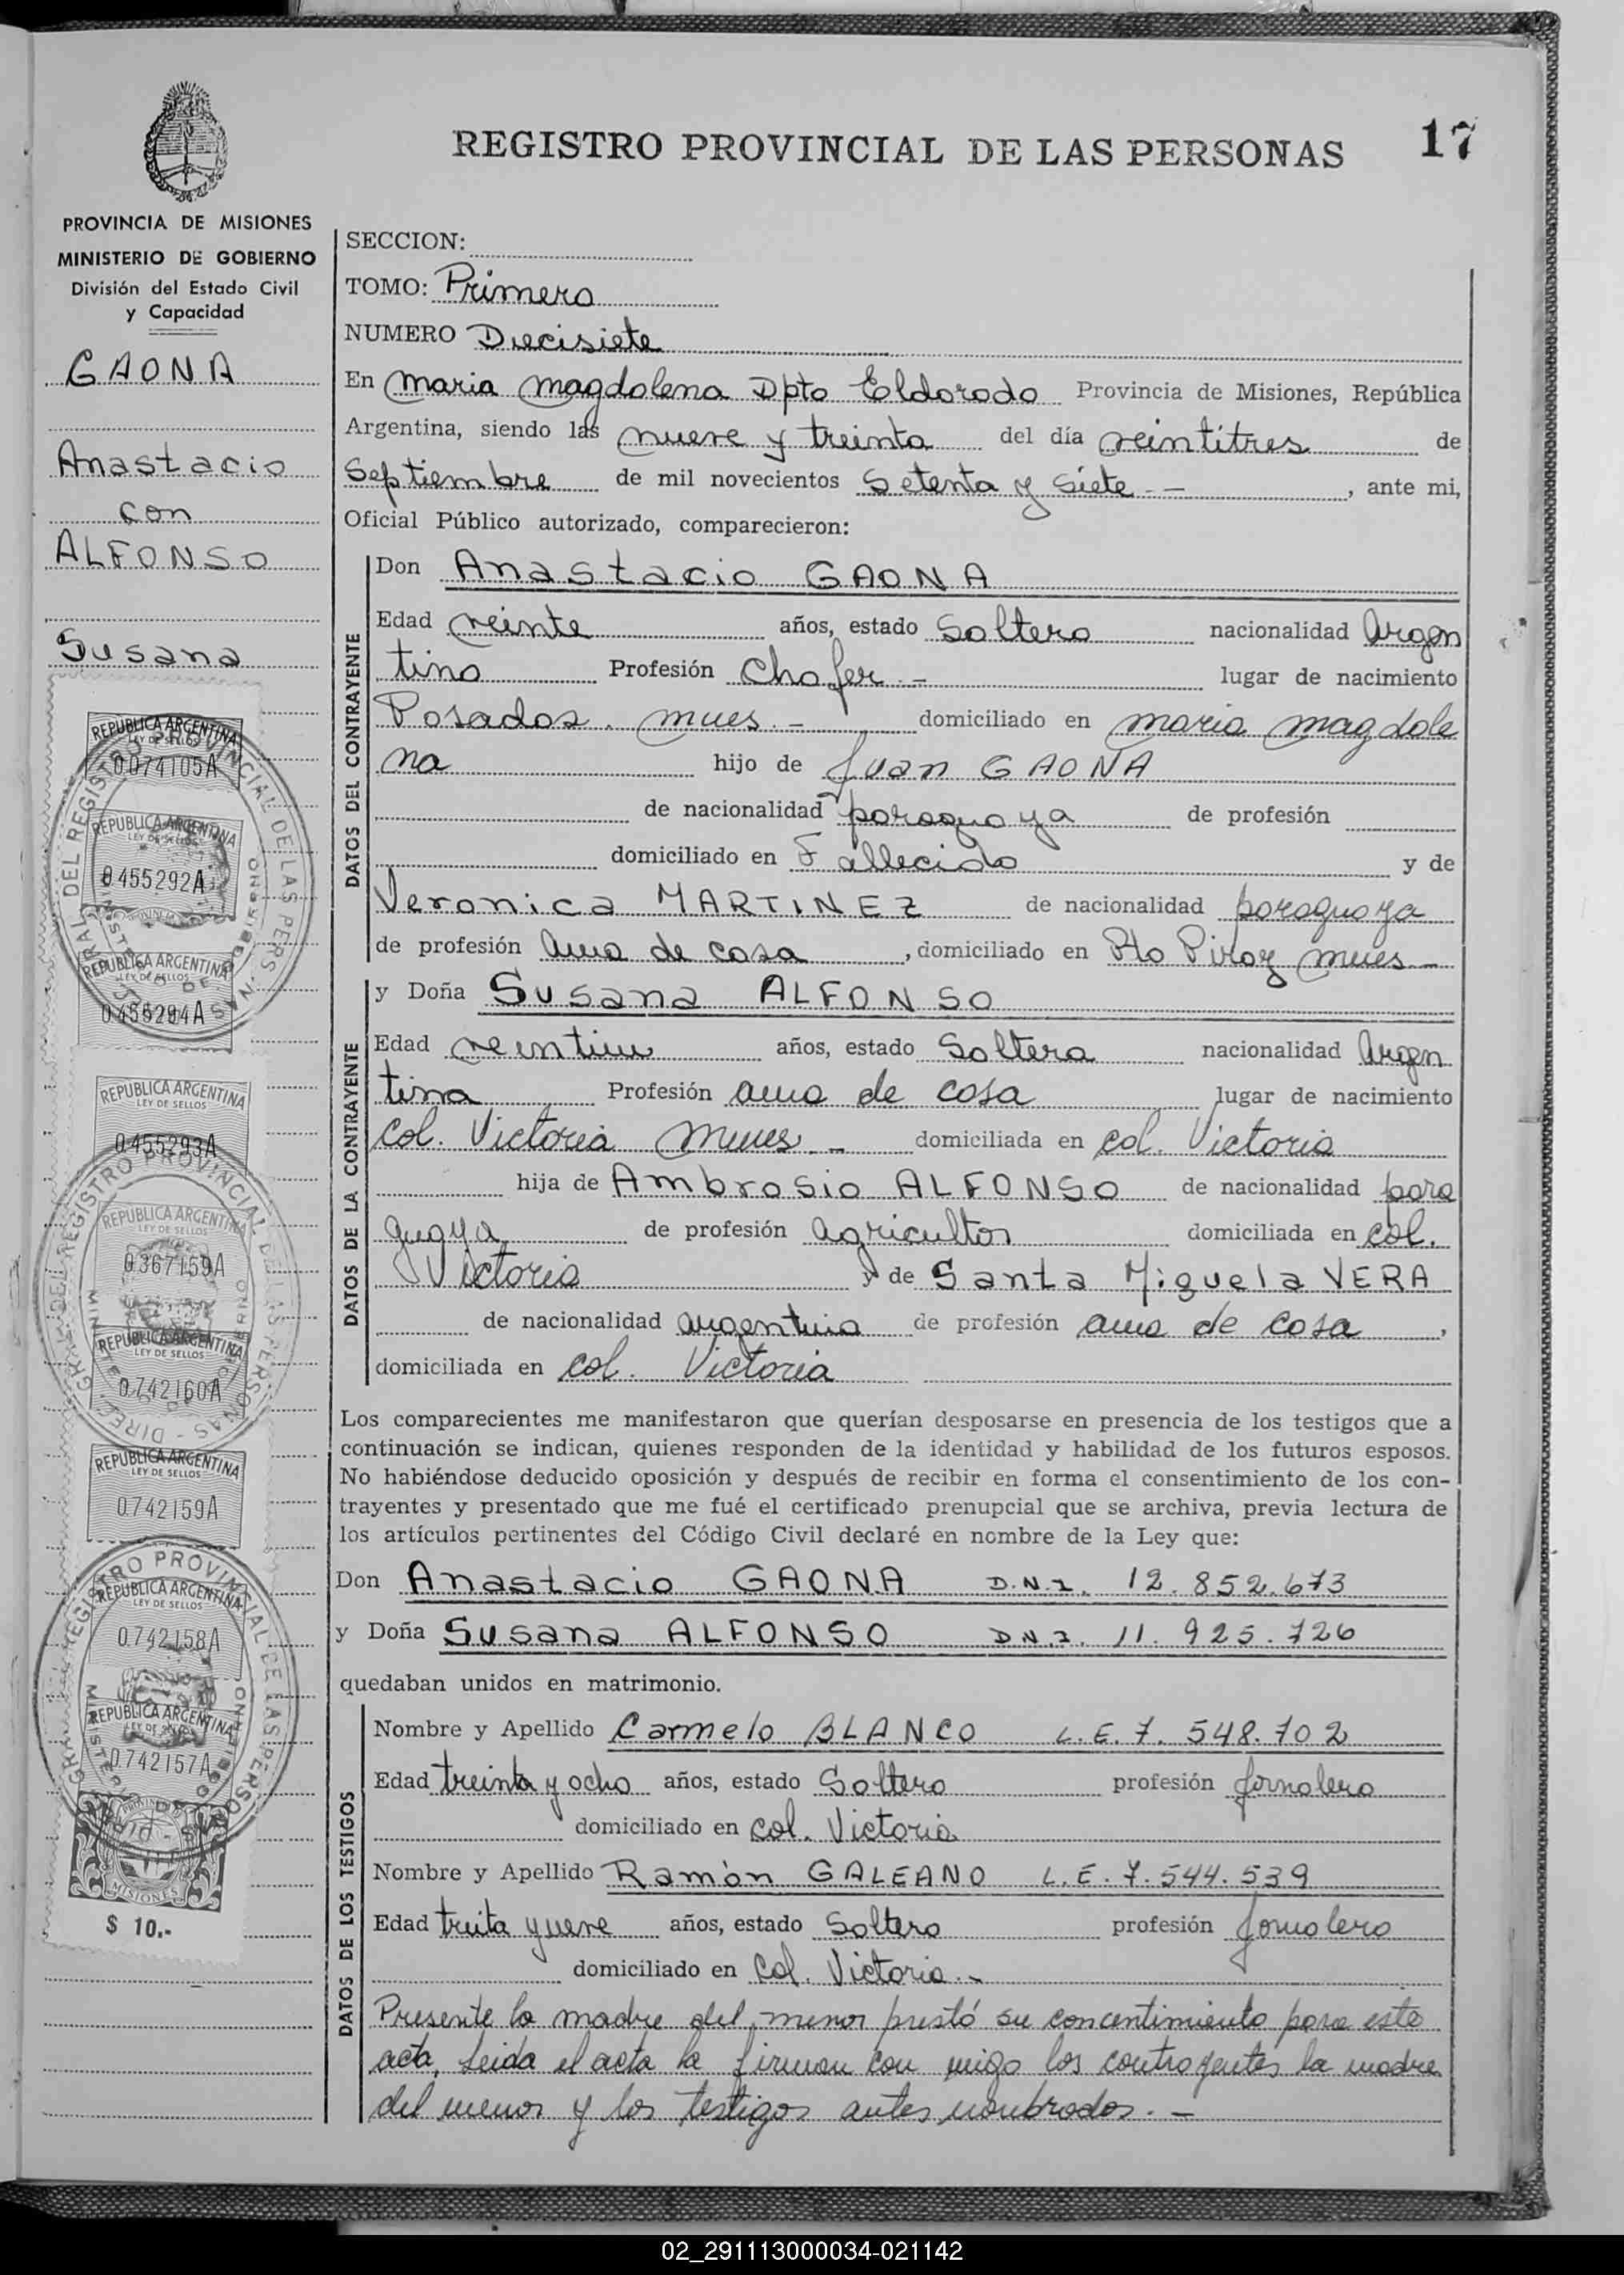 REGISTRO PROVINCIAL DE LAS PERSONAS 17
PROVINCIA DE MISIONES
MINISTERIO DE GOBIERNO
División del Estado Civil
y Capacidad
GAONA
Anastacio
con
ALFONSO
Susana
REPUBLICA ARGENTINA
LEY DE SELLOS
0074105A
REPUBLICA ARGENTINA
LEY DE SELLOS
0455292A
REPUBLICA ARGENTINA
LEY DE SELLOS
0455294A
REPUBLICA ARGENTINA
LEY DE SELLOS
0455293A
REPUBLICA ARGENTINA
LEY DE SELLOS
0367159A
REPUBLICA ARGENTINA
LEY DE SELLOS
0742160A
REPUBLICA ARGENTINA
LEY DE SELLOS
0742159A
REPUBLICA ARGENTINA
LEY DE SELLOS
0742158A
REPUBLICA ARGENTINA
LEY DE SELLOS
0742157A
MISIONES
$ 10.-
SECCION:
TOMO: Primero
NUMERO Diecisiete
En Maria Magdalena Dpto Eldorado Provincia de Misiones, República
Argentina, siendo las nueve y treinta del día veintitres de
Septiembre de mil novecientos Setenta y Siete.-, ante mi,
Oficial Público autorizado, comparecieron:
DATOS DEL CONTRAYENTE
Don Anastacio GAONA
Edad veinte años, estado Soltero nacionalidad Argen
tino Profesión Chofer.- lugar de nacimiento
Posadas. Mnes.- domiciliado en Maria Magdale
na hijo de Juan GAONA
de nacionalidad paraguaya de profesión
domiciliado en Fallecido y de
Veronica MARTINEZ de nacionalidad paraguaya
de profesión Ama de casa, domiciliado en Pto Piray Mnes-
DATOS DE LA CONTRAYENTE
y Doña Susana ALFONSO
Edad veintiun años, estado Soltera nacionalidad Argen
tina Profesión ama de casa lugar de nacimiento
Col. Victoria Mnes.- domiciliada en col. Victoria
hija de Ambrosio ALFONSO de nacionalidad para
guaya de profesión agricultor domiciliada en col.
Victoria y de Santa Miguela VERA
de nacionalidad argentina de profesión ama de casa,
domiciliada en col. Victoria
Los comparecientes me manifestaron que querían desposarse en presencia de los testigos que a
continuación se indican, quienes responden de la identidad y habilidad de los futuros esposos.
No habiéndose deducido oposición y después de recibir en forma el consentimiento de los con-
trayentes y presentado que me fué el certificado prenupcial que se archiva, previa lectura de
los artículos pertinentes del Código Civil declaré en nombre de la Ley que:
Don Anastacio GAONA D.N.I. 12.852.673
y Doña Susana ALFONSO D.N.I. 11.925.726
quedaban unidos en matrimonio.
DATOS DE LOS TESTIGOS
Nombre y Apellido Carmelo BLANCO L.E. 7.548.702
Edad treinta y ocho años, estado Soltero profesión jornalero
domiciliado en Col. Victoria
Nombre y Apellido Ramón GALEANO L.E. 7.544.539
Edad años, estado Soltero profesión jornalero
domiciliado en Col. Victoria.-
Presente la madre del menor prestó su concentimiento para este
acta, Leida el acta la firman con migo los contrayentes la madre
del menor y los testigos antes nombrados.-
02_291113000034-021142